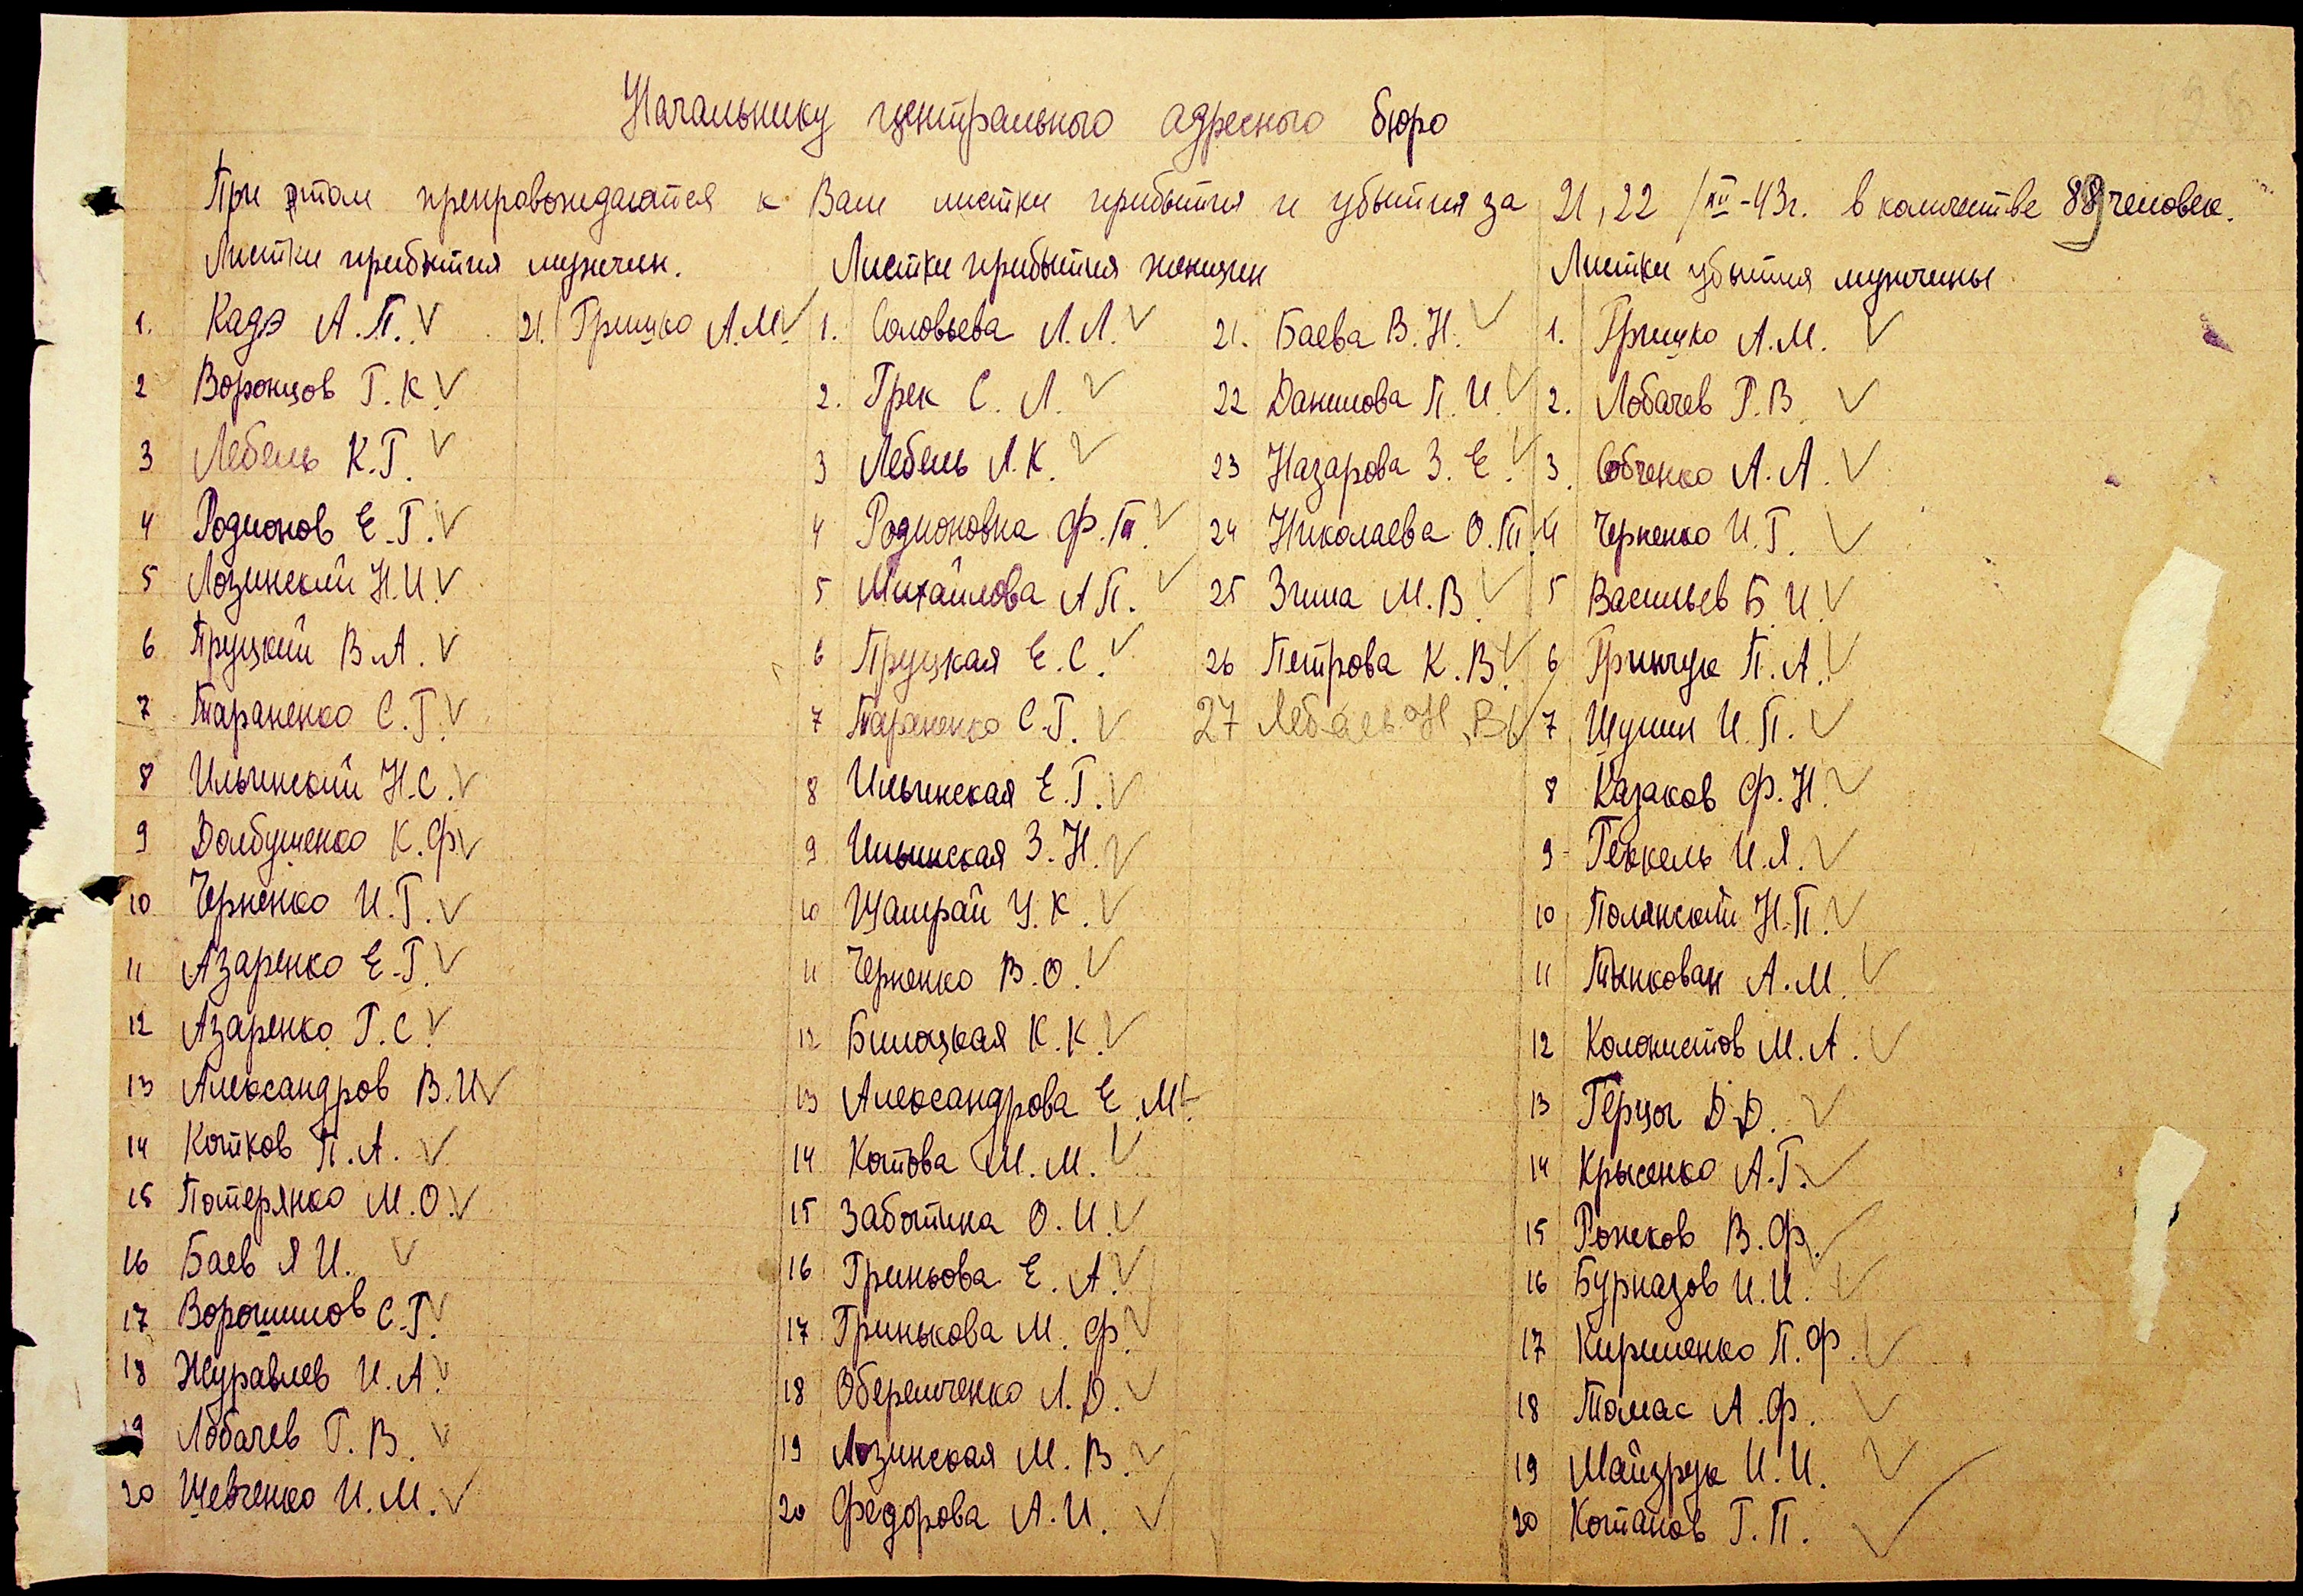 Начальнику центрального адресного бюро
При этом препровождаются к Вам листки прибытия и убытия за 21, 22 /XII-43г. в количестве 89 человек.
Листки прибытия мужчин.
1. Кадэ А.П.
2 Воронцов Г.К.
3 Лебель К.Г.
4 Родионов Е.Г.
5 Лозинский Н.И.
6 Пруцкий В.А.
7 Тараненко С.Г.
8 Ильинский Н.С.
9 Долбушенко К.Ф.
10 Черненко И.Г.
11 Азаренко Е.Г.
12 Азаренко Г.С.
13 Александров В.И.
14 Котков П.А.
15 Потерянко М.О.
16 Баев Я И.
17 Ворошилов С.Г.
18 Журавлев И.А.
19 Лобачев Г.В.
20 Шевченко И.М.
21. Гришко А.М.
Листки прибытия женщин
1. Соловьева Л.Л.
2. Грек С.Л.
3 Лебель Л.К.
4 Родионовна Ф.Т.
5 Михайлова А П.
6 Пруцкая Е.С.
7 Тараненко С.Г.
8 Ильинская Е.Г.
9 Ильинская З.Н.
10 Шамрай У.К.
11 Черненко В.О.
12 Билоцкая К.К.
13 Александрова Е.М.
14 Котова М.М.
15 Заботина О.И.
16 Гриньова Е.А.
17 Гринькова М.Ф.
18 Оберемченко Л.Д.
19 Лозинская М.В.
20 Федорова А.И.
21. Баева В.Н.
22 Данилова П.И.
23 Назарова З.Е.
24 Николаева О.Т.
25 Згила М.В.
26 Петрова К.В.
27 Лебель Н.В.
Листки убытия мужчины
1. Гришко А.М.
2. Лобачев Г.В.
3. Собченко А.А.
4 Черненко И.Г.
5 Васильев Б.И.
6 Гринчук П.А.
7 Шумин И.П.
8 Казаков Ф.Н.
9 Геккель И.Я.
10 Полянский Н.П.
11 Тынкован А.М.
12 Колонистов М.А.
13 Герцог Д.Д.
14 Крысенко А.Г.
15 Рожков В.Ф.
16 Бурназов И.И.
17 Кириленко П.Ф.
18 Томас А.Ф.
19 Майзрук И.И.
20 Котанов Г.П.